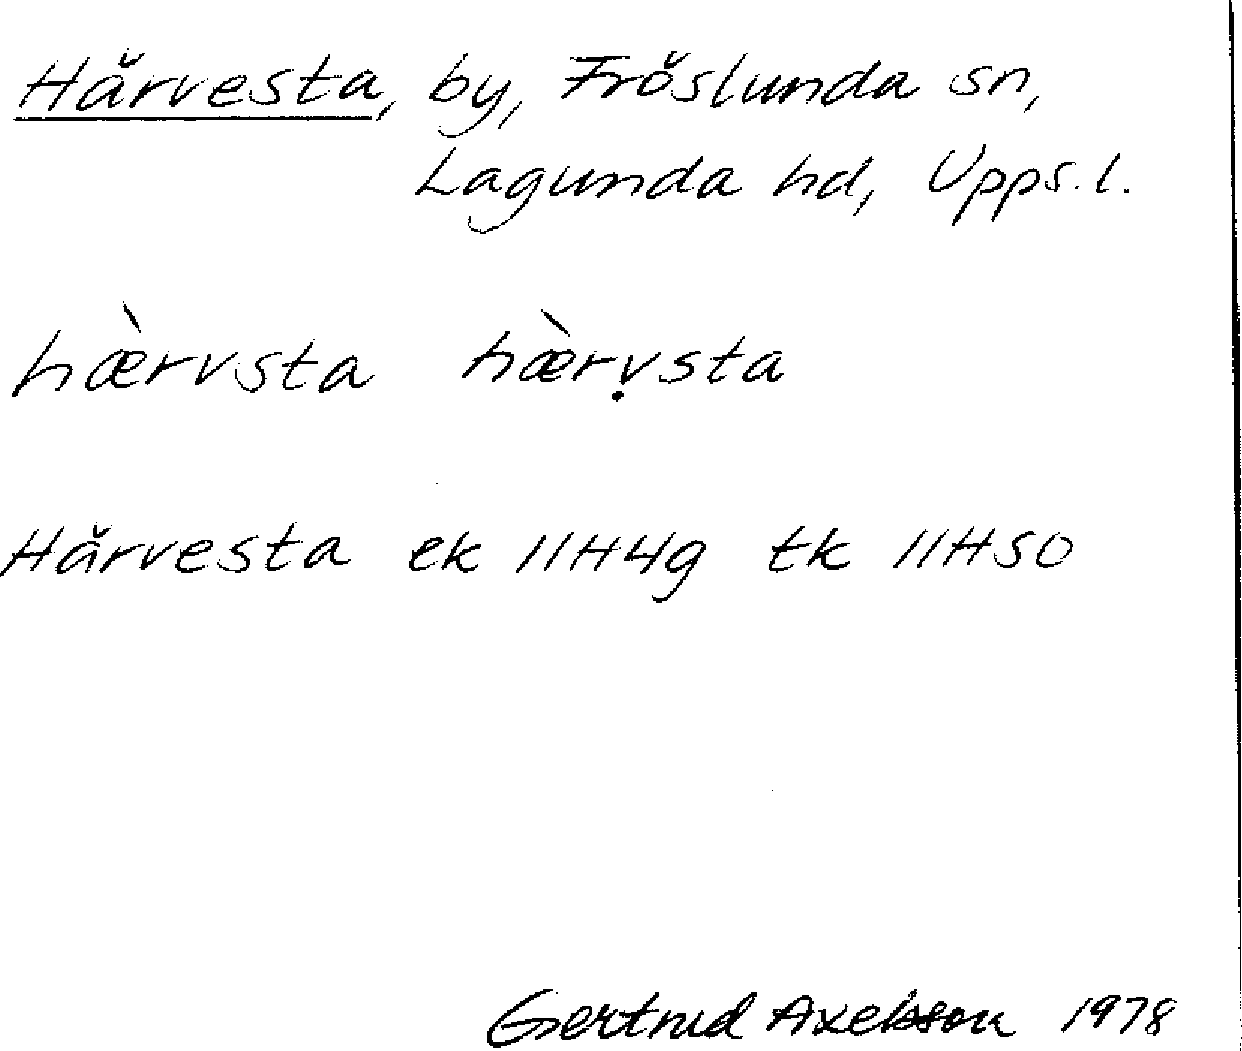 Härvesta, by, Fröslunda sn,
Lagunda hd, Upps.l.
hæ̀rvsta hæ̀rṿsta
Härvesta ek 11H4g tk 11HSO
Gertrud Axelsson 1978